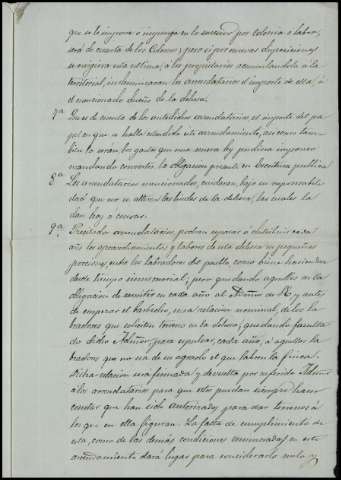 que se le impone o imponga en lo sucesivo por colonia o labor,
será de cuenta de los Colonos; pero si por nuevas disposiciones
se exigiera esta última, á los propietarios acumulándola á la
territorial, indemnizarán los arrendatarios el importe de ella, á
el mencionado dueño de la dehesa.
7ª Que es de cuenta de los repetidos arrendatarios el importe del pa
pel en que se halla estendido este arrendamiento, asi como tam-
bien lo seran los gastos que una nueva ley pudiera imponer
mandando convertir la obligacion presente en Escritura publica
8ª Los arrendatarios mencionados, cuidarán, bajo su responsabili
dad que no se alteren las lindes de la dehesa, las cuales la
dan hoy a conocer.
9ª Precitados arrendatarios, podran ceder o distribuir cada
año los aprovechamientos y labores de esta dehesa en pequeñas
porciones, entre los labradores del pueblo como bienen haciendolo
desde tiempo inmemorial; pero quedando aquellos en la
obligacion de remitir en cada año al Señor de y antes
de empezar el barbecho, una relacion nominal, de los la
bradores que soliciten terreno en la dehesa, quedando facultado
dicho Señor, para espulsar, cada año, á aquellos la
bradores que no sea de su agrado el que labren la finca.
Dicha relacion será firmada y devuelta por referido Señor
a los arrendatarios para que estos puedan siempre hacer
constar que han sido autorizados para dar terrenos á
los que en ella figuran. La falta de cumplimiento de
esta, como de las demás condiciones enumeradas en este
arrendamiento dará lugar para considerarlo nulo y